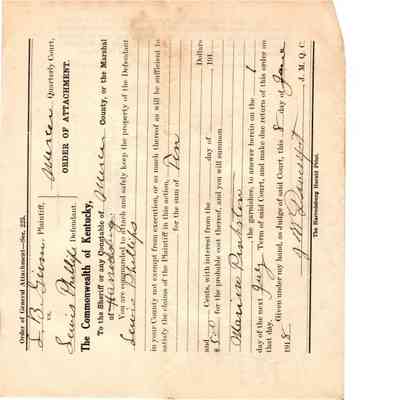 Order of General Attachment—Sec. 225.
Mercer Quarterly Court,
Plaintiff,
vs.
ORDER OF ATTACHMENT.
Lewis Phillips Defendant.
The Commonwealth of Kentucky,
To the Sheriff or any Constable of Mercer County, or the Marshal
of Harrodsburg
You are commanded to attach and safely keep the property of the Defendant
Lewis Phillips
in your County not exempt from execution, or so much thereof as will be sufficient to
satisfy the claims of the Plaintiff in this action,
for the sum of Ten Dollars
and Cents, with interest from the day of 191
$ for the probable cost thereof, and you will summon
Pinkston
the garnishee, to answer herein on the 1
day of the next July Term of said Court, and make due return of this order on
that day.
Given under my hand, as Judge of said Court, this 8 day of June
1918 J. M. Q. C.
The Harrodsburg Herald Print.